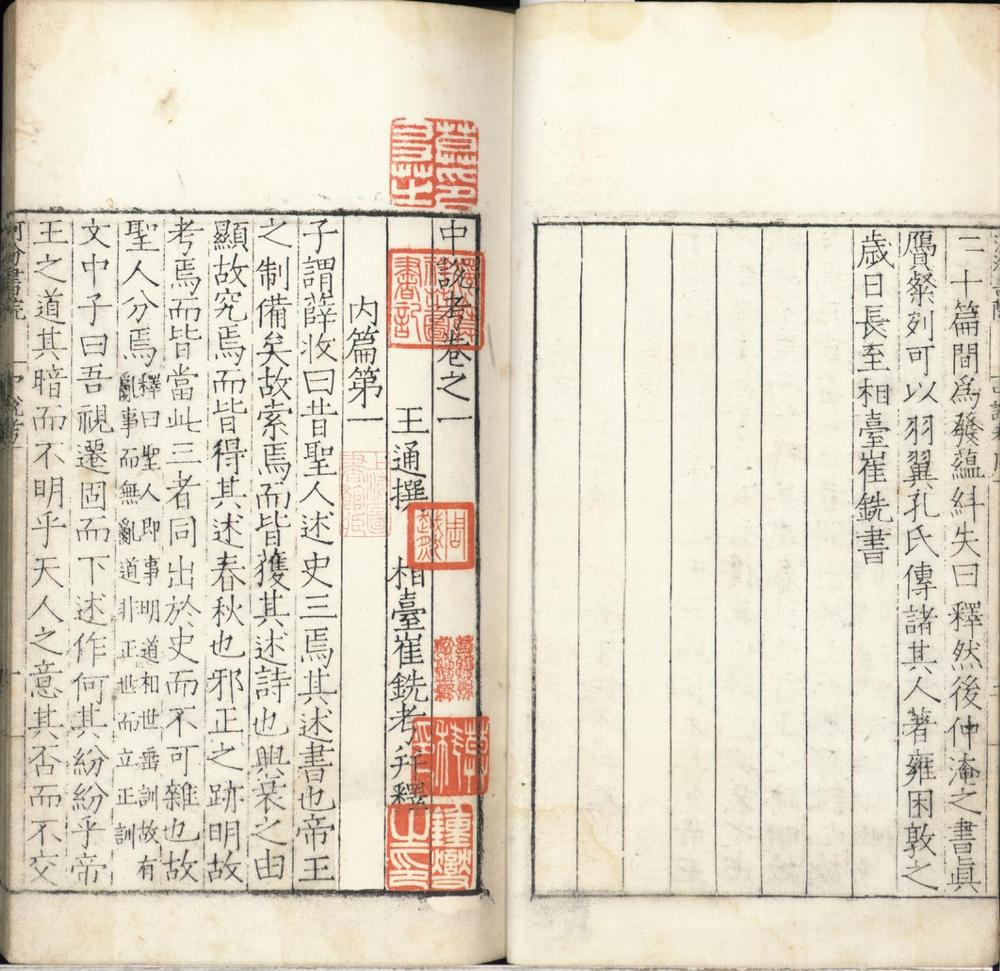 二十篇間爲發蘊糾失曰釋然後仲淹之書眞
贋粲列可以羽翼孔氏傳諸其人著雍困敦之
歲日長至相臺崔銑書
中說考卷之一
王通撰 相臺崔銑考幷釋
内篇第一
子謂薛收曰昔聖人述史三焉其述書也帝王
之制備矣故索焉而皆獲其述詩也興衰之由
顯故究焉而皆得其述春秋也邪正之跡明故
考焉而皆當此三者同出於史而不可雜也故
聖人分焉釋曰聖人即事明道相世垂訓故有
亂事而無亂道非正世而立正訓
文中子曰吾視遷固而下述作何其紛紛乎帝
王之道其暗而不明乎天人之意其否而不交
河汾書院 中說考